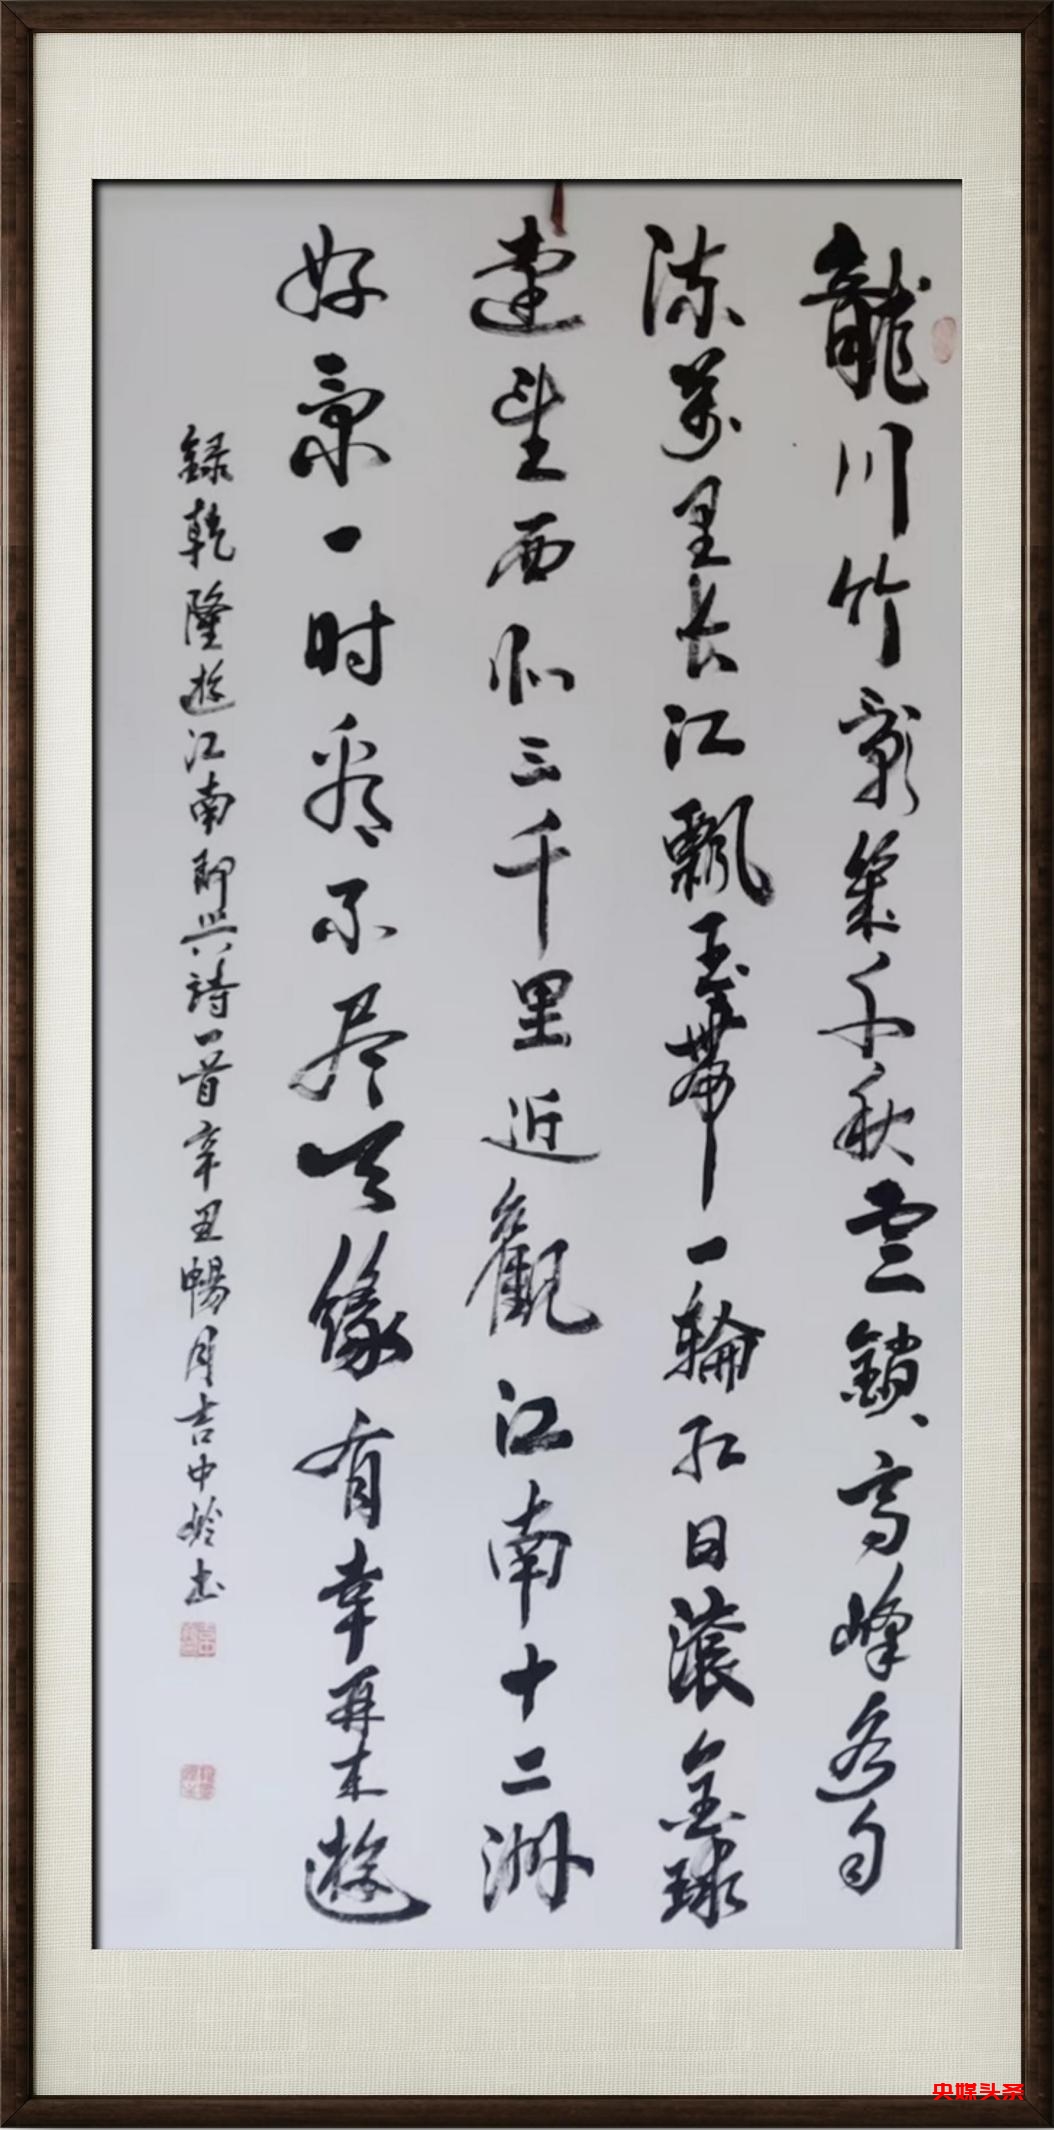 龍川竹影幾千秋雲鎖高峰自
流萬里长江飄玉帶一輪红日滾金球
遠望西北三千里近觀江南十二洲
好景一时看不尽天緣有幸再来遊
録乾隆遊江南即興詩一首辛丑暢月吉中书
央媒头条